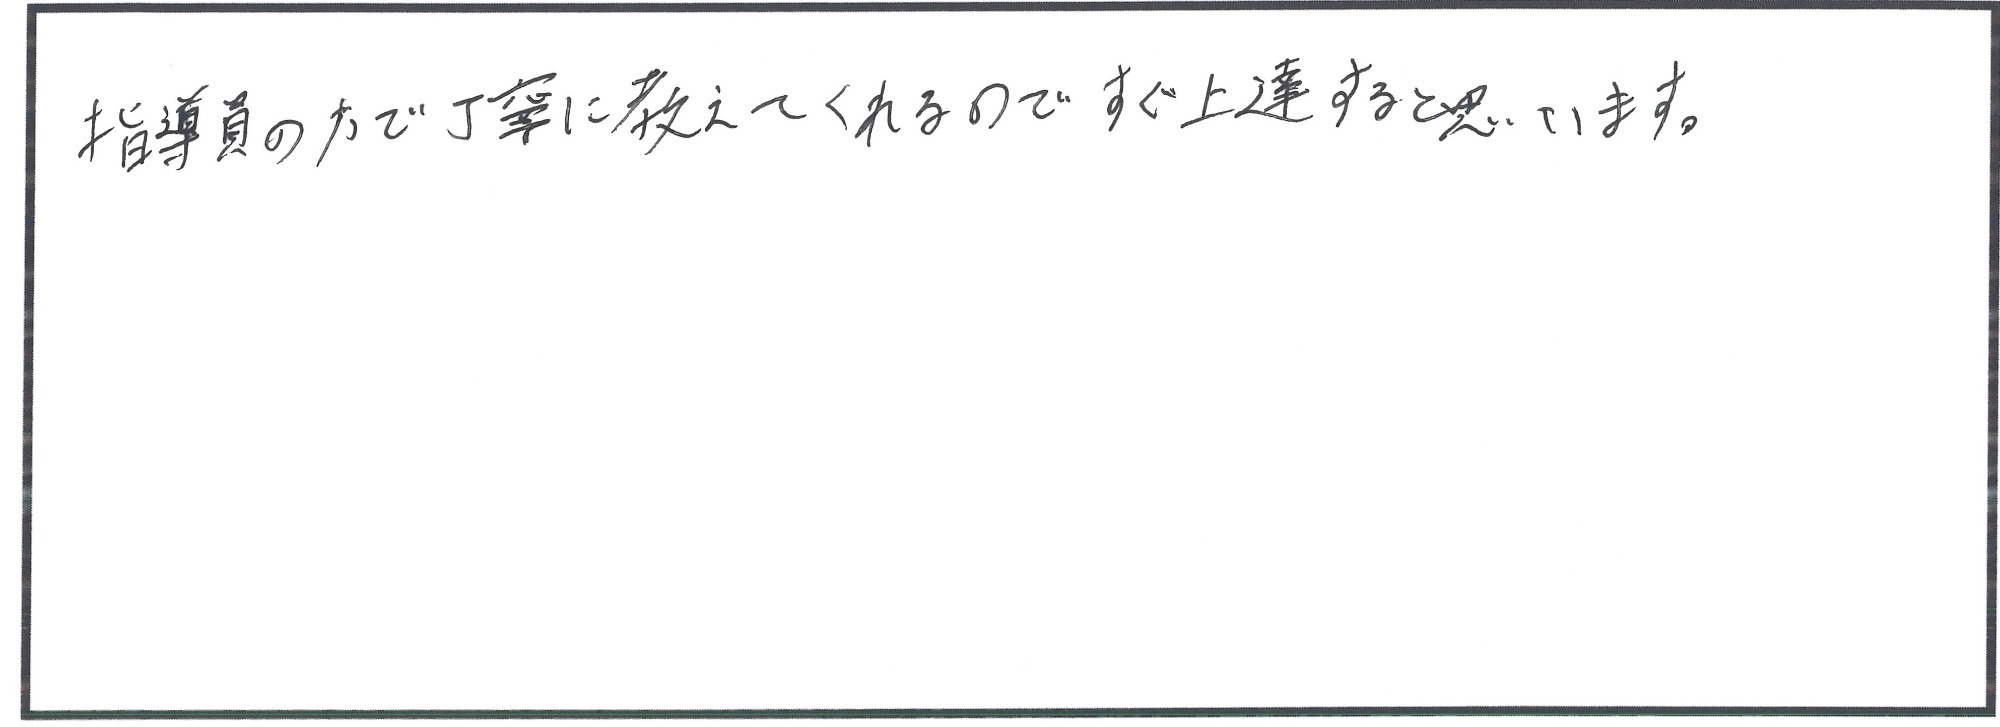 指導員の方で丁寧に教えてくれるのですぐ上達すると思います。